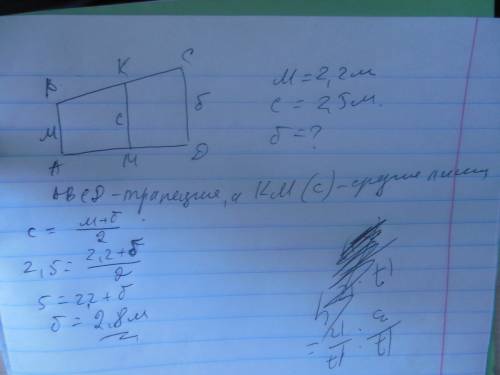 K
C
B
М
с
б
A
M
D
М = 2,2м
с = 2,5м.
б = ?
ABCD - трапеция, а KM (с) - средняя линия
с = м+б / 2
2,5 = 2,2+б / 2
5 = 2,2 + б
б = 2,8м